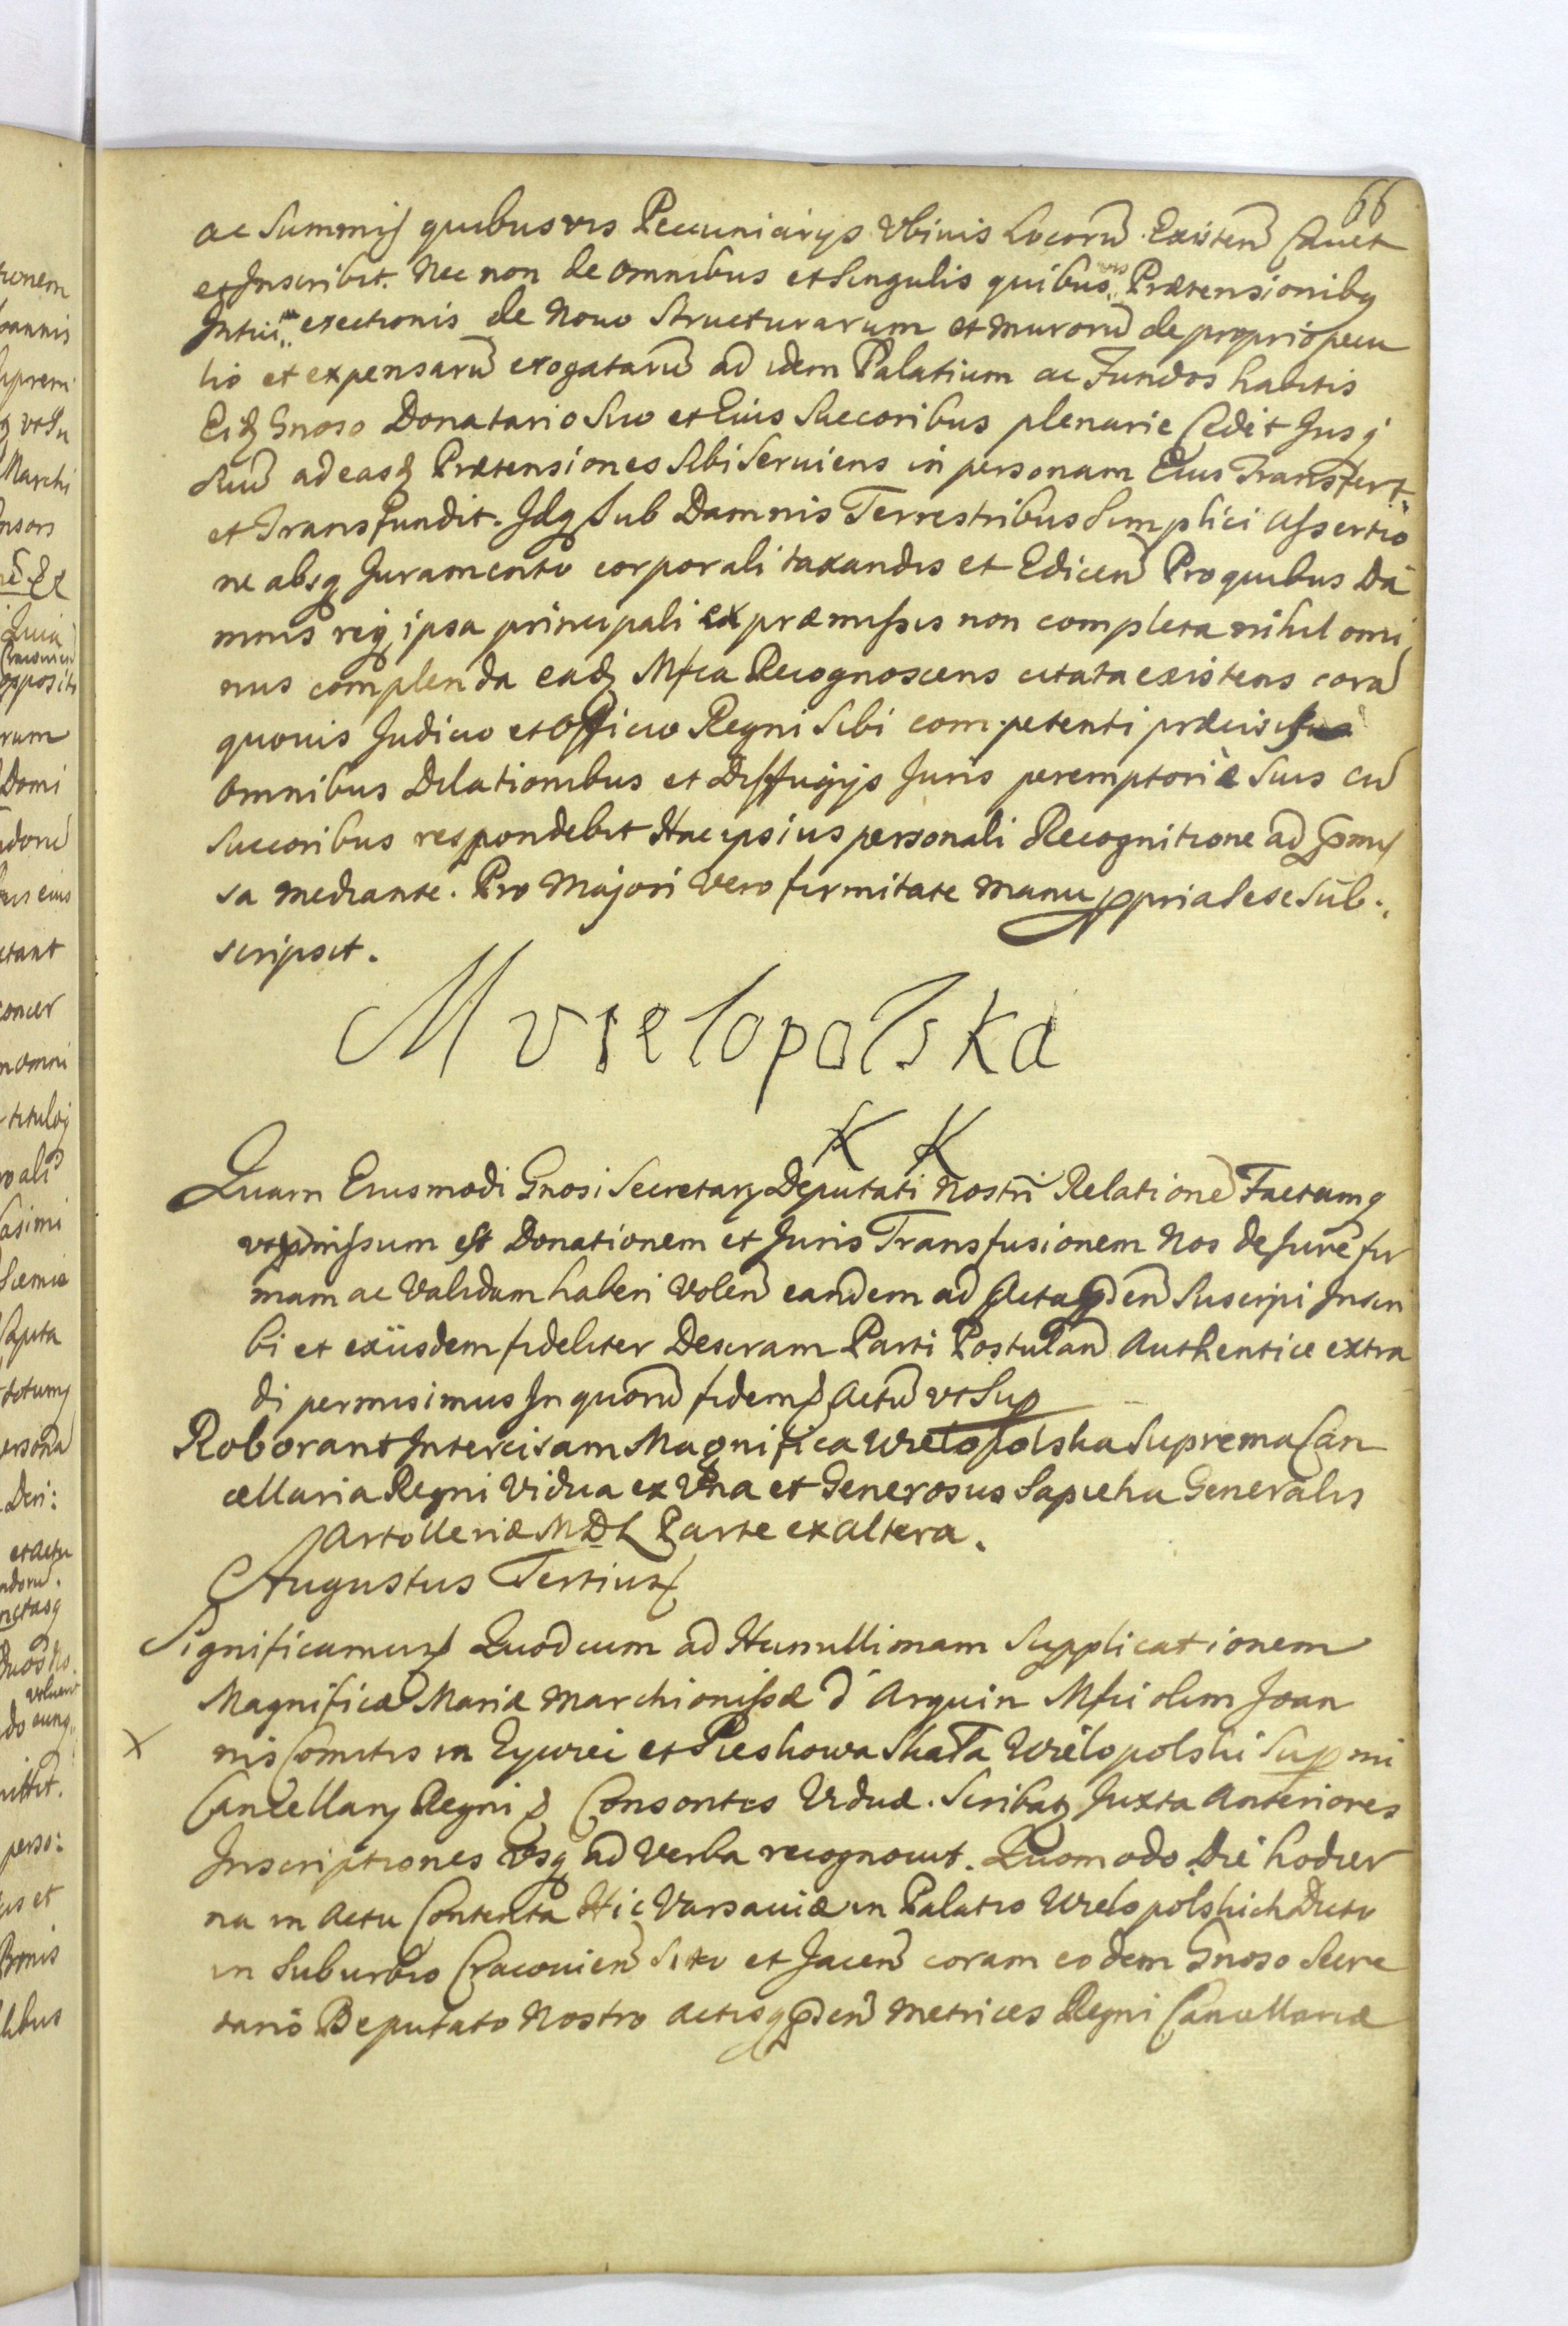 66
ac Summis quibusvis Pecuniarijs Vbivis Locorū Existeñ Cavet
et Inscribit. Nec non de omnibus et Singulis quibusvis Prætensionibq
Intuitu erectionis de Novo Structurarum et murorū de proprio pecu
lio et expensarū erogatarū ad idem Palatium ac Fundos habitis
Eidq Gnoso Donatario Suo et Eius Succoribus plenarie Cedit Jusq
Suū ad easdq Prætensiones Sibi Serviens in personam Eius Transfert
et Transfundit. Idq Sub Damnis Terrestribus Simplici Assertio
ne absq Juramento corporali taxandis et Ediceñ Pro quibus Da
mnis reiq ipsa principali ex præmissis non completa nihil omi
nus complenda eadq Mfca Recognoscens citata existens corā
quovis Judicio et Officio Regni Sibi competenti præcisis
Omnibus Dilationibus et Diffugijs Juris peremptoriè Suis cū
Succoribus respondebit Hac ipsius personali Recognitione ad pmis
sa mediante. Pro Majori Vero firmitate manu ppria Sese Sub
scripsit.
M vielopolska
K K
Quam Eiusmodi Gnosi Secretarij Deputati Nostri Relationē Factamq
vt pmissum est Donationem et Juris Transfusionem Nos de Jure fir
mam ac Validam haberi Voleñ eandem ad Acta pñdeñ Suscipi Inscri
bi et exiisdem fideliter Descram Parti Postulañ Authentice extra
di permisimus In quorū fidem Actū vt Sup
Roborant Intercisam Magnifica Wielopolska Suprema Can
cellaria Regni Vidua ex Vna et Generosus Sapieha Generalis
Artolleriæ MDL Parte ex altera.
Augustus Tertius
Significamus Quod cum ad Humillimam Supplicationem
Magnificæ Mariæ Marchionissæ d'Arquin Mfci olim Joan
X nis Comitis in Zywiei et Pieskowa Skała Wielopolski Supmi
Cancellarij Regni Consortis Viduæ. Scribatq Juxta Anteriores
Inscriptiones Vsq ad Verba recognovit. Quomodo Die hodier
na in Actu Contenta Hic Varsaviæ in Palatio Wielopolskich Dicto
in Suburbio Cracovień Sito et Jaceñ coram eodem Gnoso Secre
tario Deputato Nostro Actisq pñdeñ Metrices Regni Cancellariæ